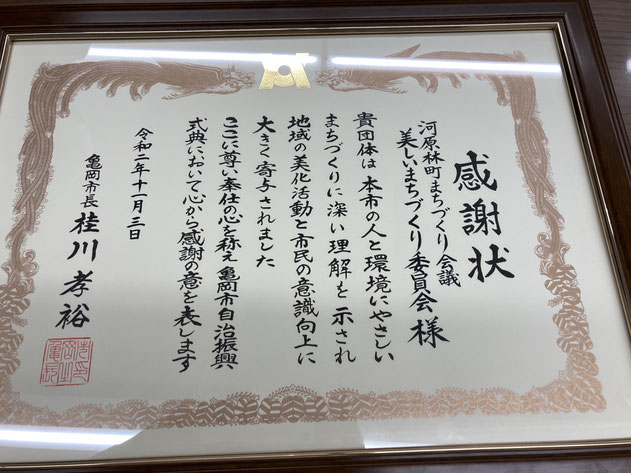 感謝状
河原林町まちづくり会議
美しいまちづくり委員会様
貴団体は本市の人と環境にやさしい
まちづくりに深い理解を示され
地域の美化活動と市民の意識向上に
大きく寄与されました
ここに尊い奉仕の心を称え亀岡市自治振興
式典において心から感謝の意を表します
令和二年十一月三日
亀岡市長 桂川孝裕